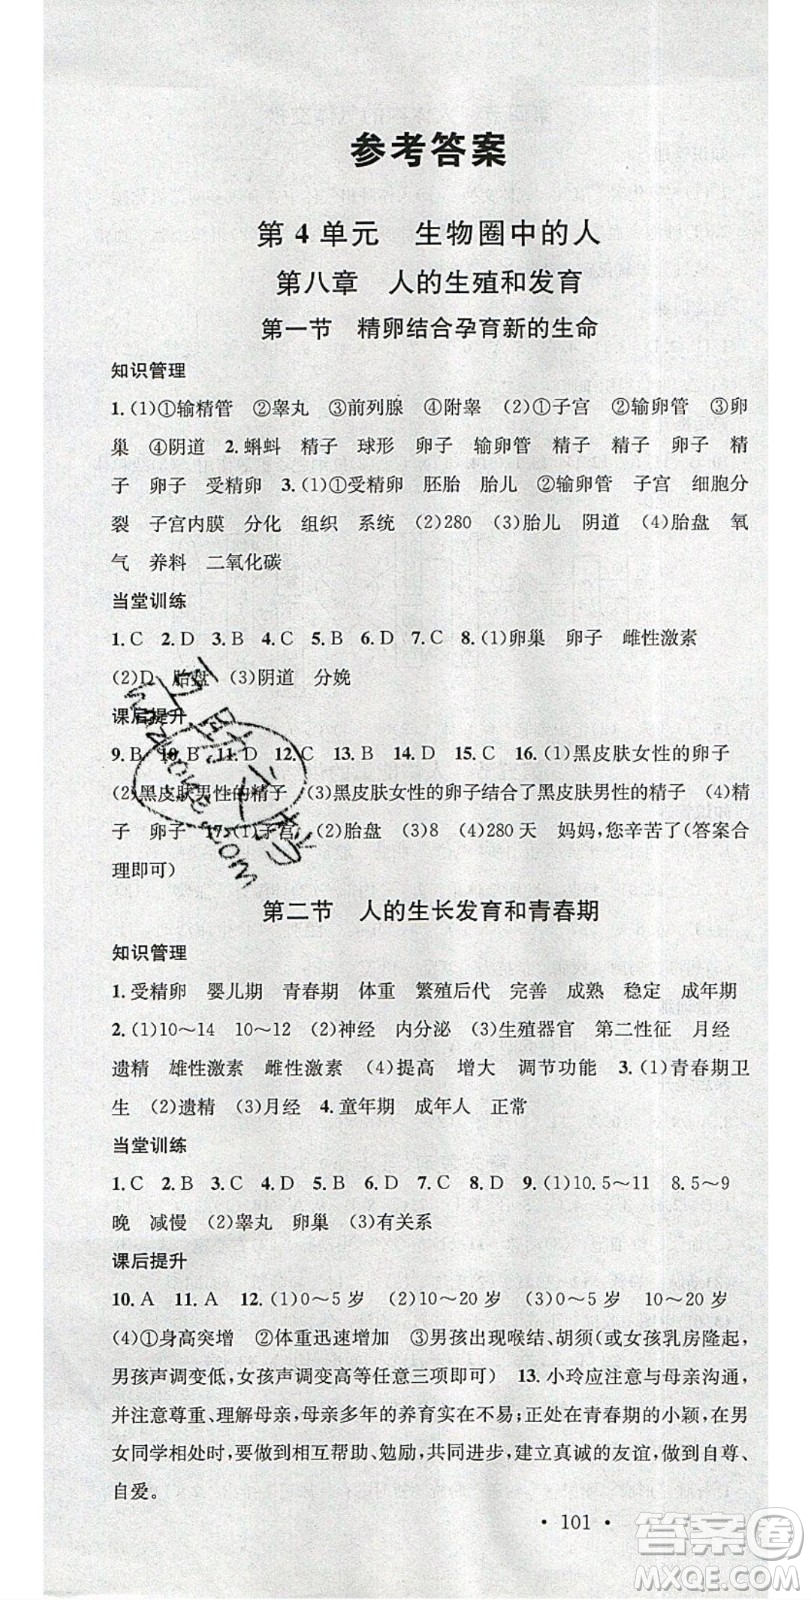 参考答案
第 4 单元　生物圈中的人
第八章　人的生殖和发育
第一节　精卵结合孕育新的生命
知识管理
1. (1)①输精管　②睾丸　③前列腺　④附睾　(2)①子宫　②输卵管　③卵
巢　④阴道　2. 蝌蚪　精子　球形　卵子　输卵管　精子　卵子　精
子　卵子　受精卵　3. (1)①受精卵　胚胎　胎儿　②输卵管　子宫　细胞分
裂　子宫内膜　分化　组织　系统　(2)280　(3)胎儿　阴道　(4)胎盘　氧
气　养料　二氧化碳
当堂训练
1. C　2. D　3. B　4. C　5. B　6. D　7. C　8. (1)卵巢　卵子　雌性激素
(2)D　胎盘　(3)阴道　分娩
课后提升
9. B　10. B　11. D　12. C　13. B　14. D　15. C　16. (1)黑皮肤女性的卵子
(2)黑皮肤男性的精子　(3)黑皮肤女性的卵子结合了黑皮肤男性的精子　(4)精
子　卵子　17. (1)子宫　(2)胎盘　(3)8　(4)280 天　妈妈，您辛苦了(答案合
理即可)
第二节　人的生长发育和青春期
知识管理
1. 受精卵　婴儿期　青春期　体重　繁殖后代　完善　成熟　稳定　成年期
2. (1)10～14　10～12　(2)神经　内分泌　(3)生殖器官　第二性征　月经
遗精　雄性激素　雌性激素　(4)提高　增大　调节功能　3. (1)青春期卫
生　(2)遗精　(3)月经　4. 童年期　成年人　正常
当堂训练
1. C　2. B　3. C　4. D　5. B　6. D　7. C　8. D　9. (1)10. 5～11　8. 5～9
晚　减慢　(2)睾丸　卵巢　(3)有关系
课后提升
10. A　11. A　12. (1)0～5 岁　(2)10～20 岁　(3)0～5 岁　10～20 岁
(4)①身高突增　②体重迅速增加　③男孩出现喉结、胡须(或女孩乳房隆起，
男孩声调变低，女孩声调变高等任意三项即可)　13. 小玲应注意与母亲沟通，
并注意尊重、理解母亲，母亲多年的养育实在不易；正处在青春期的小颖，在男
女同学相处时，要做到相互帮助、勉励，共同进步，建立真诚的友谊，做到自尊、
自爱。
· 101 ·
答案圈
MXQE.COM